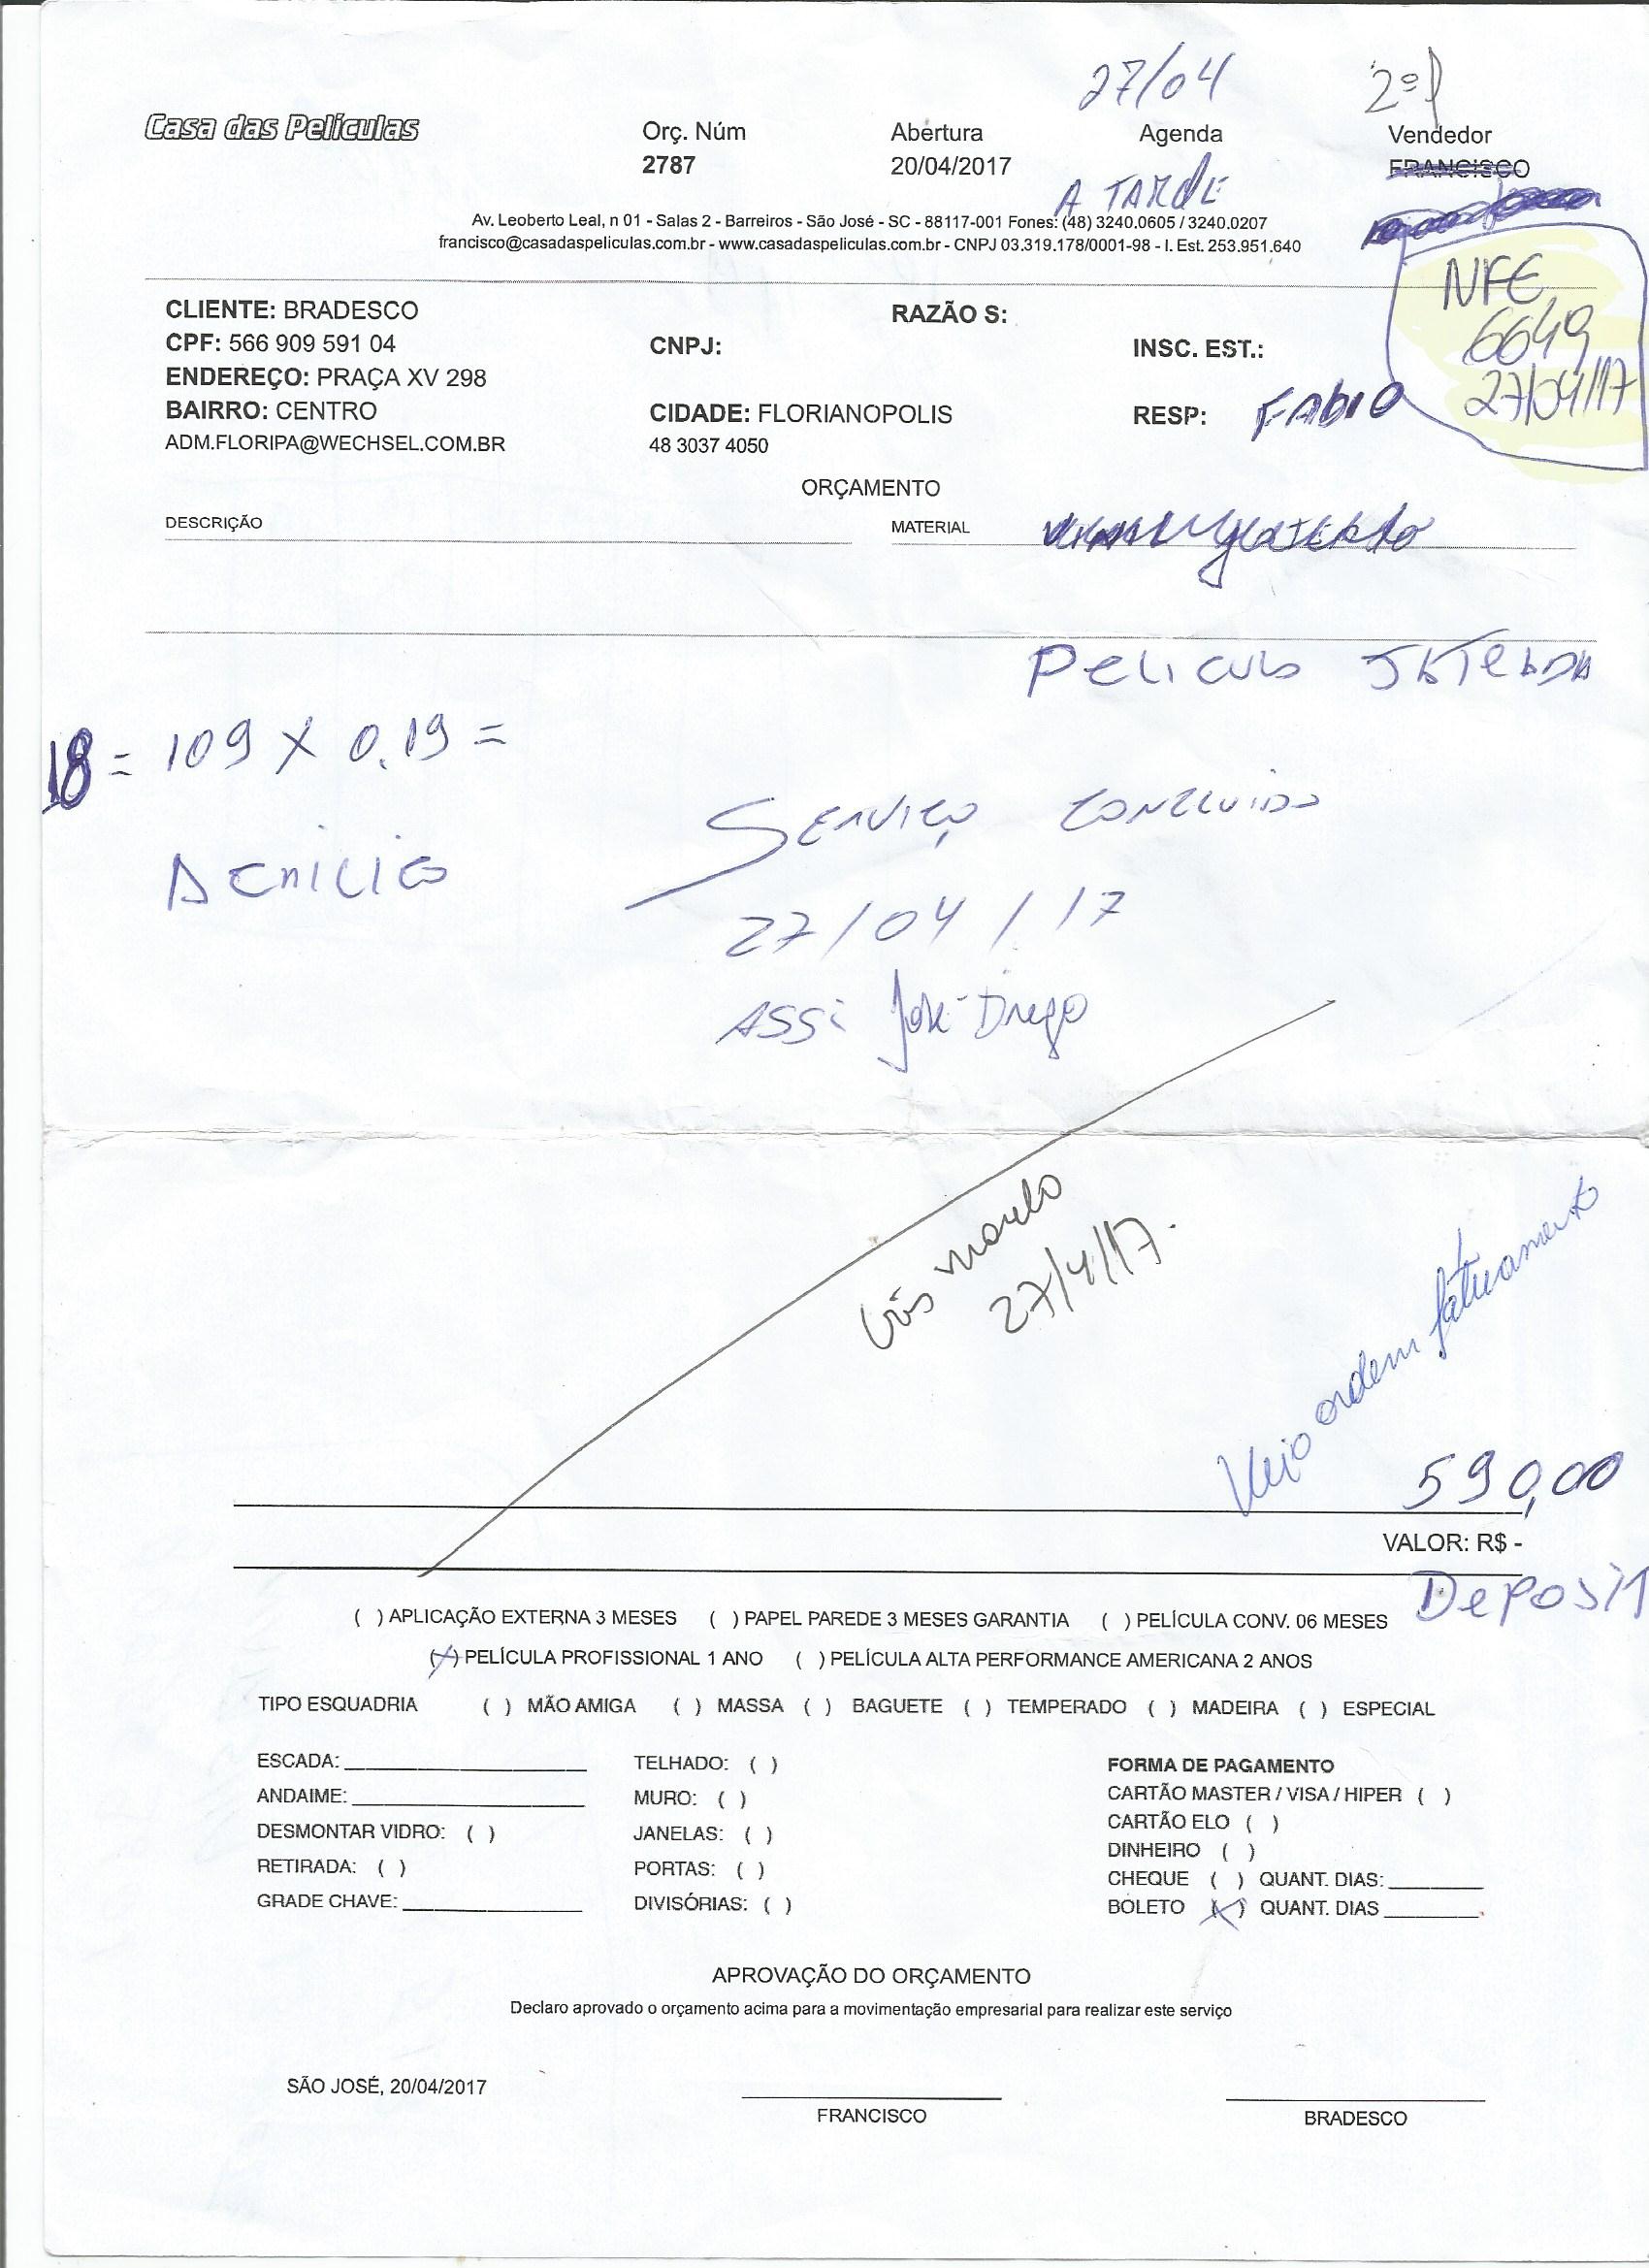 27/04
Casa das Películas
Orç. Núm
Abertura
Agenda
Vendedor
2787
20/04/2017
FRANCISCO
A TARDE
Av. Leoberto Leal, n 01 - Salas 2 - Barreiros - São José - SC - 88117-001 Fones: (48) 3240.0605 / 3240.0207
francisco@casadaspeliculas.com.br - www.casadaspeliculas.com.br - CNPJ 03.319.178/0001-98 - I. Est. 253.951.640
NFE
6649
27/04/17
CLIENTE: BRADESCO
RAZÃO S:
CPF: 566 909 591 04
CNPJ:
INSC. EST.:
ENDEREÇO: PRAÇA XV 298
BAIRRO: CENTRO
CIDADE: FLORIANOPOLIS
RESP: FABIO
ADM.FLORIPA@WECHSEL.COM.BR
48 3037 4050
ORÇAMENTO
DESCRIÇÃO
MATERIAL
Pelicula JATEADA
18 = 109 X 0.19 =
Serviço Concluido
27/04/17
ASS: José Diego
27/4/17.
Veio ordem faturamento
590,00
VALOR: R$ -
Deposit
( ) APLICAÇÃO EXTERNA 3 MESES ( ) PAPEL PAREDE 3 MESES GARANTIA ( ) PELÍCULA CONV. 06 MESES
(X) PELÍCULA PROFISSIONAL 1 ANO ( ) PELÍCULA ALTA PERFORMANCE AMERICANA 2 ANOS
TIPO ESQUADRIA ( ) MÃO AMIGA ( ) MASSA ( ) BAGUETE ( ) TEMPERADO ( ) MADEIRA ( ) ESPECIAL
ESCADA:
TELHADO: ( )
FORMA DE PAGAMENTO
ANDAIME:
MURO: ( )
CARTÃO MASTER / VISA / HIPER ( )
DESMONTAR VIDRO: ( )
JANELAS: ( )
CARTÃO ELO ( )
DINHEIRO ( )
RETIRADA: ( )
PORTAS: ( )
CHEQUE ( ) QUANT. DIAS:
GRADE CHAVE:
DIVISÓRIAS: ( )
BOLETO (X) QUANT. DIAS
APROVAÇÃO DO ORÇAMENTO
Declaro aprovado o orçamento acima para a movimentação empresarial para realizar este serviço
SÃO JOSÉ, 20/04/2017
FRANCISCO
BRADESCO